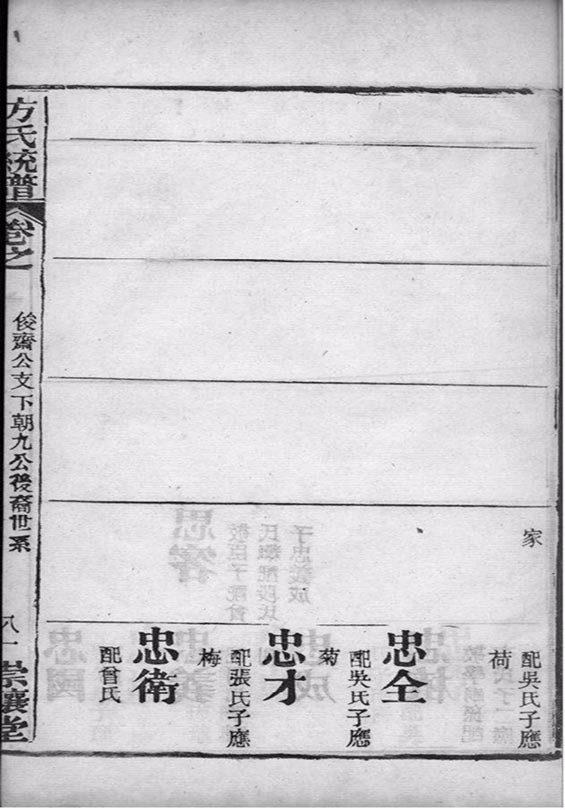 家
配吳氏子應
荷
忠全
配吳氏子應
菊
忠才
配張氏子應
梅
忠衛
配曾氏
方氏統譜
卷之
俊齋公支下朝九公後裔世系
八一
崇讓堂